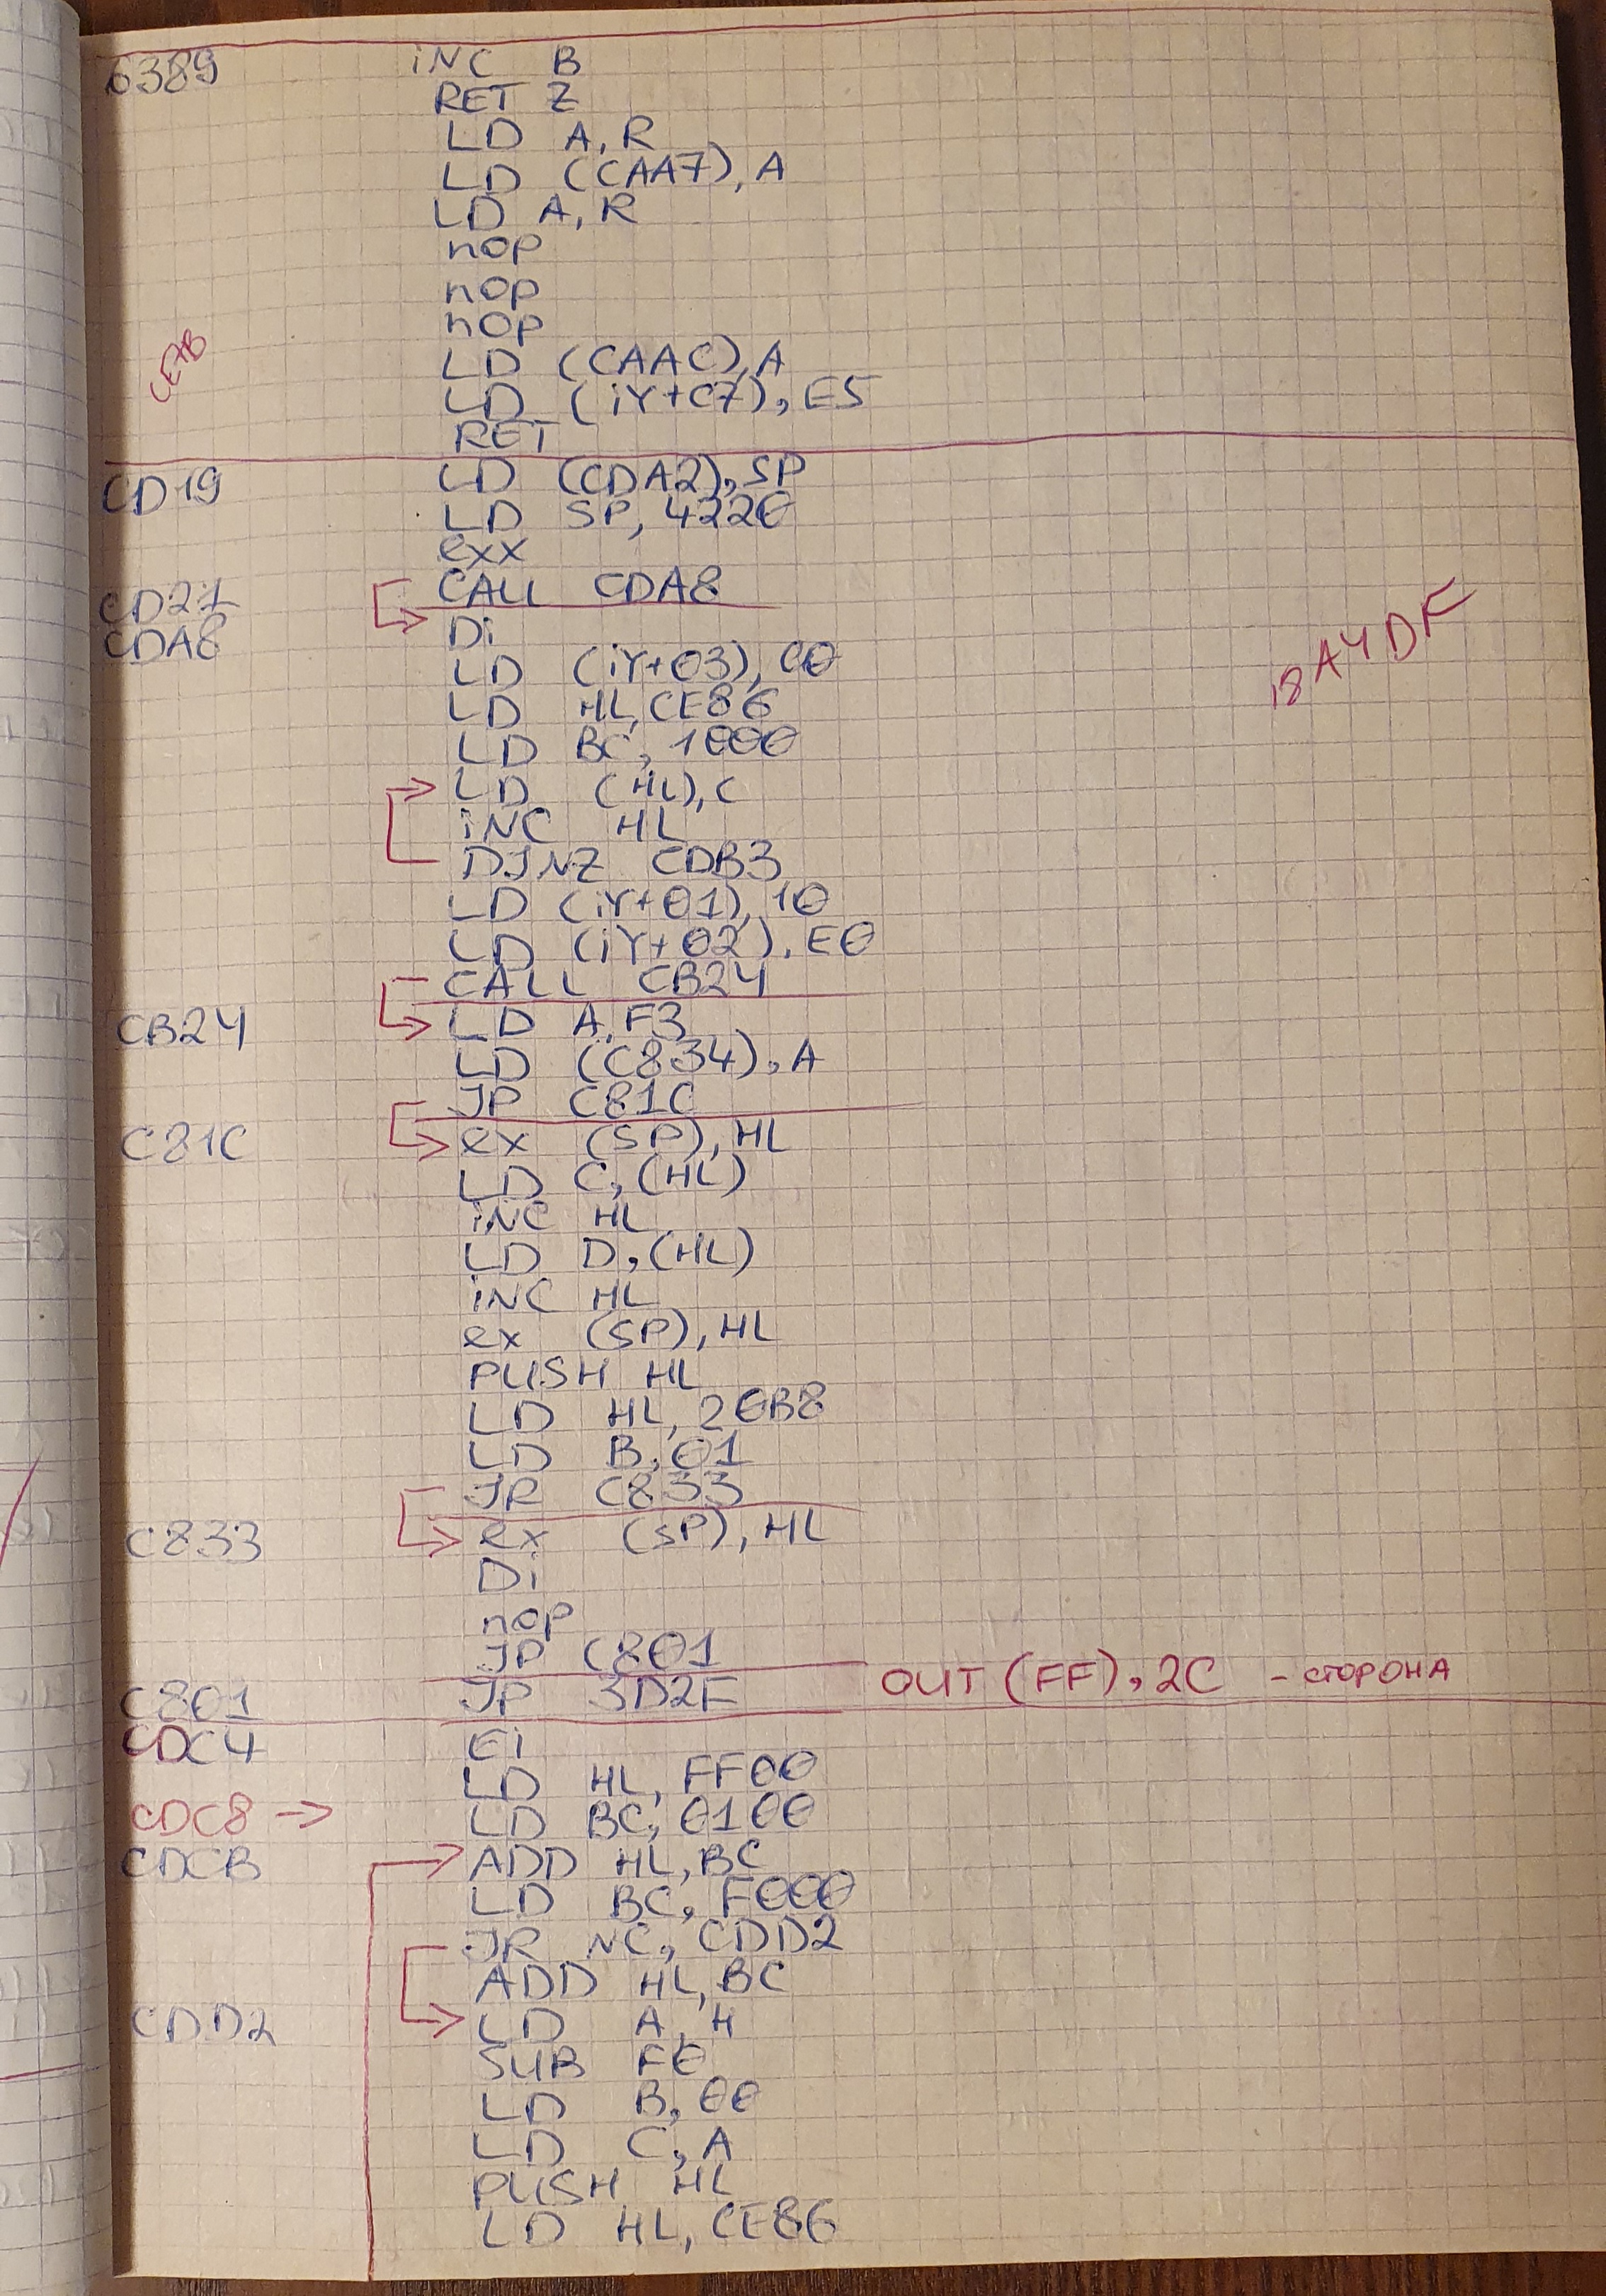 6389 INC B
RET Z
LD A, R
LD (CAA7), A
LD A, R
nop
nop
nop
LD (CAAC), A
CE7B
LD (iY+C7), E5
RET
CD19 LD (CDA2), SP
LD SP, 4220
exx
CD21 CALL CDA8
CDA8 Di
LD (iY+03), C0
18A4DF
LD HL, CE86
LD BC, 1000
LD (HL), C
iNC HL
DJNZ CDB3
LD (iY+01), 10
LD (iY+02), E0
CALL CB24
CB24 LD A, F3
LD (C834), A
JP C81C
C81C ex (SP), HL
LD C, (HL)
iNC HL
LD D, (HL)
iNC HL
ex (SP), HL
PUSH HL
LD HL, 20B8
LD B, 01
JR C833
C833 ex (SP), HL
Di
nop
JP C801
C801 JP 3D2F OUT (FF), 2C - СТОРОНА
CDC4 Ei
LD HL, FF00
CDC8 → LD BC, 0100
CDCB ADD HL, BC
LD BC, F000
JR NC, CDD2
ADD HL, BC
CDD2 LD A, H
SUB F0
LD B, 00
LD C, A
PUSH HL
LD HL, CE86